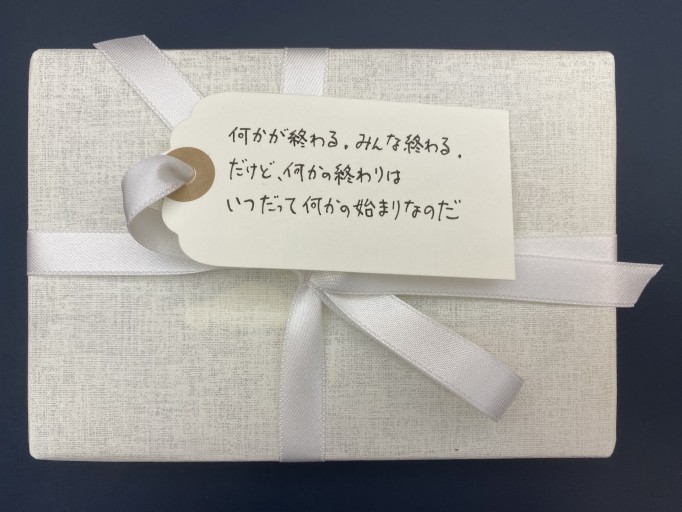 何かが終わる。みんな終わる。
だけど、何かの終わりは
いつだって何かの始まりなのだ